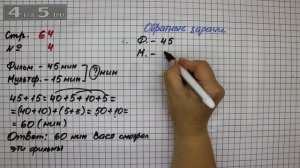 4a5.net
Стр. 64
№ 4
Фильм - 45 мин
Мультф. - 15 мин
? мин
45+15=40+5+10+5=
=(40+10)+(5+5)=50+10=
=60 (мин)
Ответ: 60 мин Вася смотрел
эти фильмы
Обратные задачи
Ф. - 45
М. -